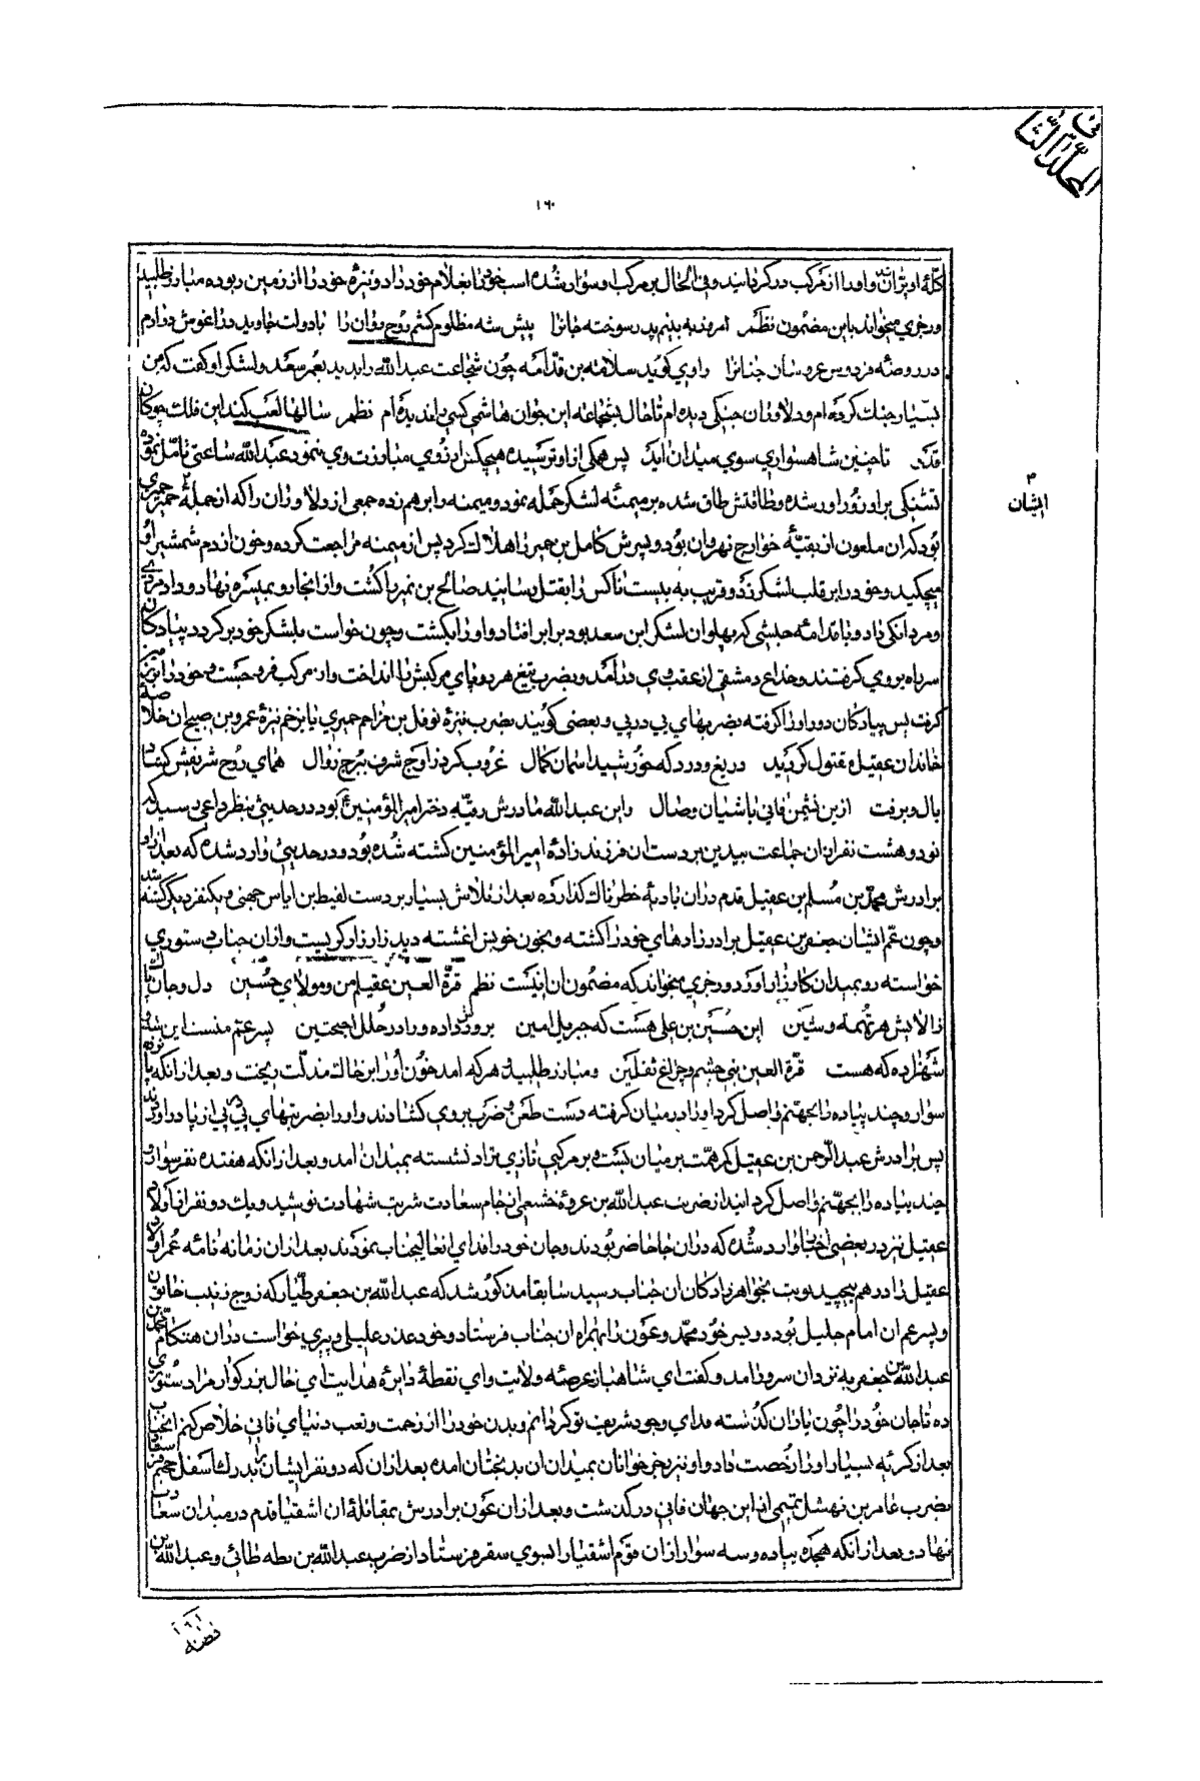 المجلد الثانی
۱۶۰
کلهٔ او پران و او را از مرکب درگردانید و فی الحال بر مرکب او سوار شده اسب خود را بغلام خود داد و نیزهٔ خود را از زمین ربوده مبارز طلبید
و رجزی میخواند باین مضمون نظم امروز به بینم پدر سوخته جانرا پیش شه مظلوم کشم روح روان را با دولت جاوید در اغوش در ارم
در روضهٔ فردوس عروسان جنانرا راوی گوید سلامه بن قدامه چون شجاعت عبدالله را بدید بعمر سعد و لشکر او گفت که من
بسیار جنک کرده ام و دلاوران جنکی دیده ام تا حال بشجاعت این جوان هاشمی کسی را ندیده ام نظم سالها لعب کند این فلک چوکان
قد تا چنین شاهسواری سوی میدان آید پس همکی از او ترسیده هیچکس ارزوی مبارزت وی ننمود عبدالله ساعتی تامل نموده
تشنکی بر او زور اور شده و طاقتش طاق شده بر میمنهٔ لشکر حمله نمود و میمنه را بر هم زده جمعی از دلاوران را که از جمله حمیر حمیری
ایشان
بود که ان ملعون از بقیهٔ خوارج نهروان بود و پسرش کامل بن حمیر را هلاک کرد پس از میمنه مراجعت کرده و خون از دم شمشیر او
میچکید و خود را بر قلب لشکر زد و قریب به بیست ناکس را بقتل رسانید صالح بن نمیر را کشت و از انجا رو بمیسره نهاد و داد مردی
و مردانکی داد و با قدامهٔ حبشی که پهلوان لشکر ابن سعد بود برابر افتاد و او را بکشت و چون خواست بلشکر خود برکردد پیادکان
سر راه بر وی کرفتند و خداع دمشقی از عقب وی درآمد و بضرب تیغ هر دو پای مرکبش را انداخت و از مرکب فرو جست و خود را بزمین
کرفت پس پیادکان دور او را کرفته بضربهای پی در پی و بعضی کویند بضرب نیزهٔ نوفل بن مزاحم حمیری یا بزخم نیزهٔ عمرو بن صبیح ان خلاصهٔ
خاندان عقیل مقتول گردید دریغ و درد که خورشید اسمان کمال غروب کرد ز اوج شرف ببرج زوال همای روح شریفش کشاد
بال و برفت ازین نشیمن فانی باشیان وصال و این عبدالله مادرش رقیه دختر امیرالمؤمنین بود در حدیثی بنظر داعی رسید که
نود و هشت نفر از ان جماعت بیدین بر دست ان فرزند زاده امیر المؤمنین کشته شده بود و در حدیثی وارد شده که بعد از او
برادرش محمد بن مسلم بن عقیل قدم دران بادیهٔ خطرناک کذارده بعد از تلاش بسیار بر دست لقیط بن ایاس جهنی و یکنفر دیکر کشته شد
و چون عم ایشان جعفر بن عقیل برادر زادهای خود را کشته و بخون خویش اغشته دید زار زار کریست و از ان جناب دستوری
خواسته رو بمیدان کارزار اورد و رجزی میخواند که مضمون ان اینست نظم قرة العین عقیلم من و مولای حسین دل و جان پاک
ز الایش هر تهمه و شین این حسین بن علی هست که جبریل امین پرورش داده ورا در حلل اجنحتین پسر عم منست این شه و
شهزاده که هست قرة العین نبی چشم و چراغ ثقلین و مبارز طلبید و هر که امد خون او را بر خاک مذلت ریخت و بعد از انکه پانزده
سوار و چند پیاده را بجهنم واصل کرد او را در میان گرفته دست طعن و ضرب بر وی کشادند و او را بضربتهای پی در پی از پا در اوردند
پس برادرش عبدالرحمن بن عقیل کمر همت بر میان بست و بر مرکبی تازی نژاد نشسته بمیدان امد و بعد از انکه هفده نفر سوار و
چند پیاده را بجهنم واصل کردانید از ضربت عبدالله بن عروهٔ خثعمی از جام سعادت شربت شهادت نوشید و یک دو نفر از اولاد
عقیل نیز در بعضی اخبار وارد شده که در ان جا حاضر بودند و جان خود را فدای انعالیجناب نمودند بعد از ان زمانه نامه عمر اولاد
عقیل را در هم پیچید نوبت بخواهر زادکان ان جناب رسید سابقا مذکور شد که عبدالله بن جعفر طیار که زوج زینب خاتون
و پسر عم ان امام جلیل بود دو پسر خود محمد و عون را بهمراه ان جناب فرستاد و خود عذر علیلی و پیری خواست در ان هنکام محمد بن
عبدالله بن جعفر به نزد ان سرور امد و کفت ای شاهباز عرصهٔ ولایت و ای نقطهٔ دایرهٔ هدایت ای خال بزرکوار مرا دستوری
ده تا جان خود را چون یاران کذشته فدای وجود شریف تو کردانم و بدن خود را از زحمت و تعب دنیای فانی خلاص کنم انجناب
بعد از کریه بسیار او را رخصت داد و او نیز رجز خوانان بمیدان ان بدبختان امده بعد از ان که دو نفر ایشان را بدرک اسفل جحیم فرستاد
بضرب عامر بن نهشل تمیمی از این جهان فانی درکذشت و بعد از ان عون برادرش بمقاتلهٔ ان اشقیا قدم در میدان سعادت
نهاد و بعد از انکه هجده پیاده و سه سوار از ان قوم اشقیا را بسوی سقر فرستاد از ضرب عبدالله بن بطه طائی و عبدالله بن
۱۶۱